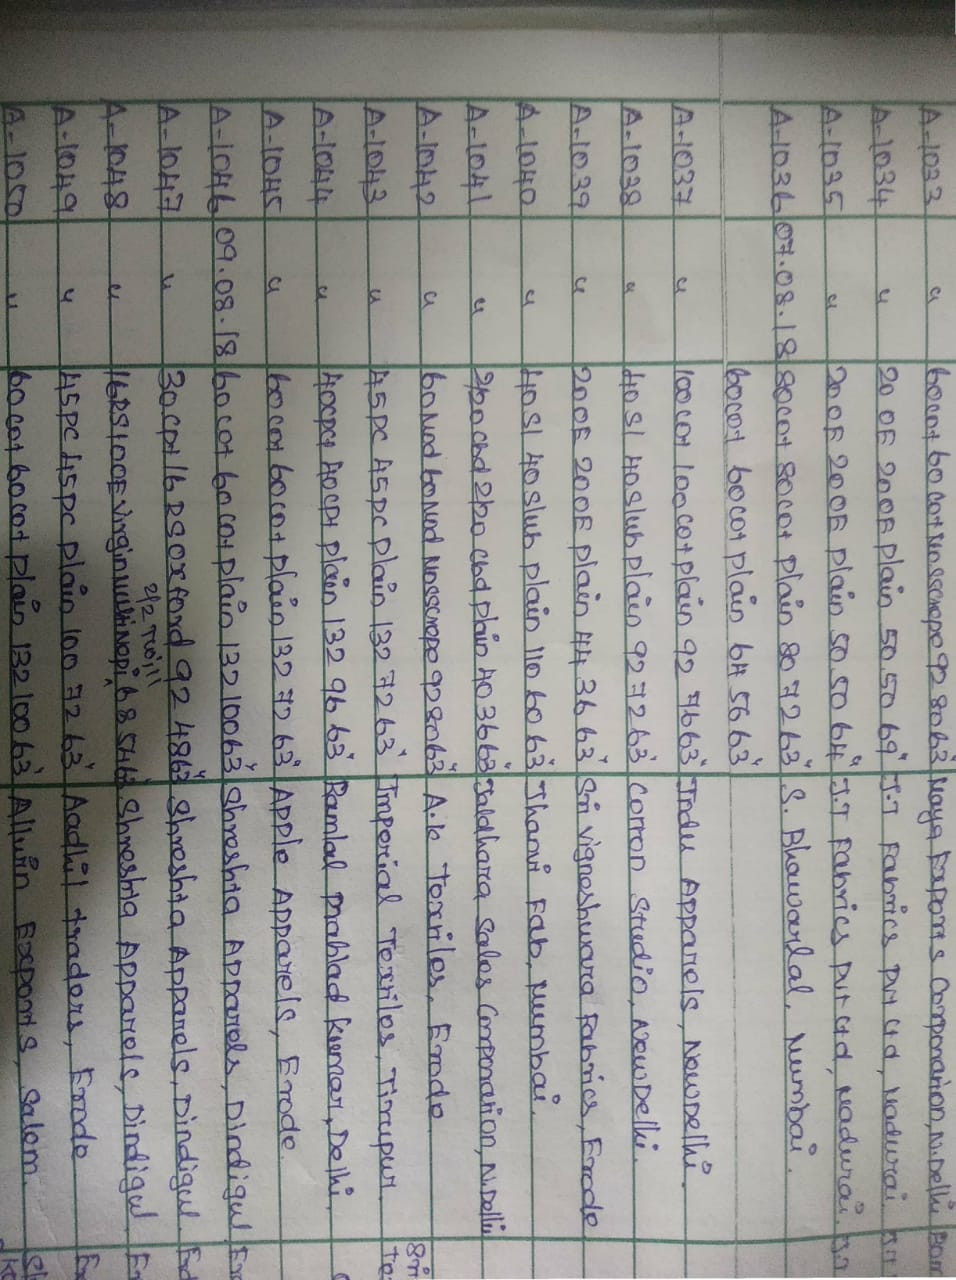 A-1033 " 60cot 60cot Nonscropo 92 80 63" Maya Exports Corporation, N.Delhi
A-1034 " 20 OE 20 OE plain 50 50 69" J.T Fabrics Pvt Ltd, Madurai.
A-1035 " 20 OE 20 OE plain 50 50 64" J.T Fabrics Pvt Ltd, Madurai.
A-1036 07.08.18 80cot 80cot plain 80 72 63" S. Bhawarlal, Mumbai.
60cot 60cot plain 64 56 63"
A-1037 " 100cot 100cot plain 92 76 63" Indu Apparels, New Delhi.
A-1038 " 40 Sl 40 Slub plain 92 72 63" Cotton Studio, New Delhi.
A-1039 " 20 OE 20 OE plain 44 36 63" Sri Vigneshwara Fabrics, Erode
A-1040 " 40 Sl 40 Slub plain 110 60 63" Thanvi Fab, Mumbai.
A-1041 " 2/60 cbd 2/60 cbd plain 40 36 63" Saldhara Sales Corporation, N.Delhi
A-1042 " 60 Mod 60 Mod Nonscropo 92 80 63" A.K Textiles, Erode
A-1043 " 45 PC 45 PC plain 132 72 63" Imperial Textiles, Tirupur.
A-1044 " 40cpt 40cpt plain 132 96 63" Ramlal Prahlad Kumar, Delhi.
A-1045 " 60cot 60cot plain 132 72 63" Apple Apparels, Erode.
A-1046 09.08.18 60cot 60cot plain 132 100 63" Shreshta Apparels, Dindigul.
A-1047 " 30cpt 16 DS Oxford 92 48 63" Shreshta Apparels, Dindigul.
2/2 Twill
A-1048 " 16 DS 10 OE Virgin 68 54 63" Shreshta Apparels, Dindigul
A-1049 " 45 PC 45 PC plain 100 72 63" Aadhil Traders, Erode
A-1050 " 60cot 60cot plain 132 100 63" Allwin Exports, Salem.